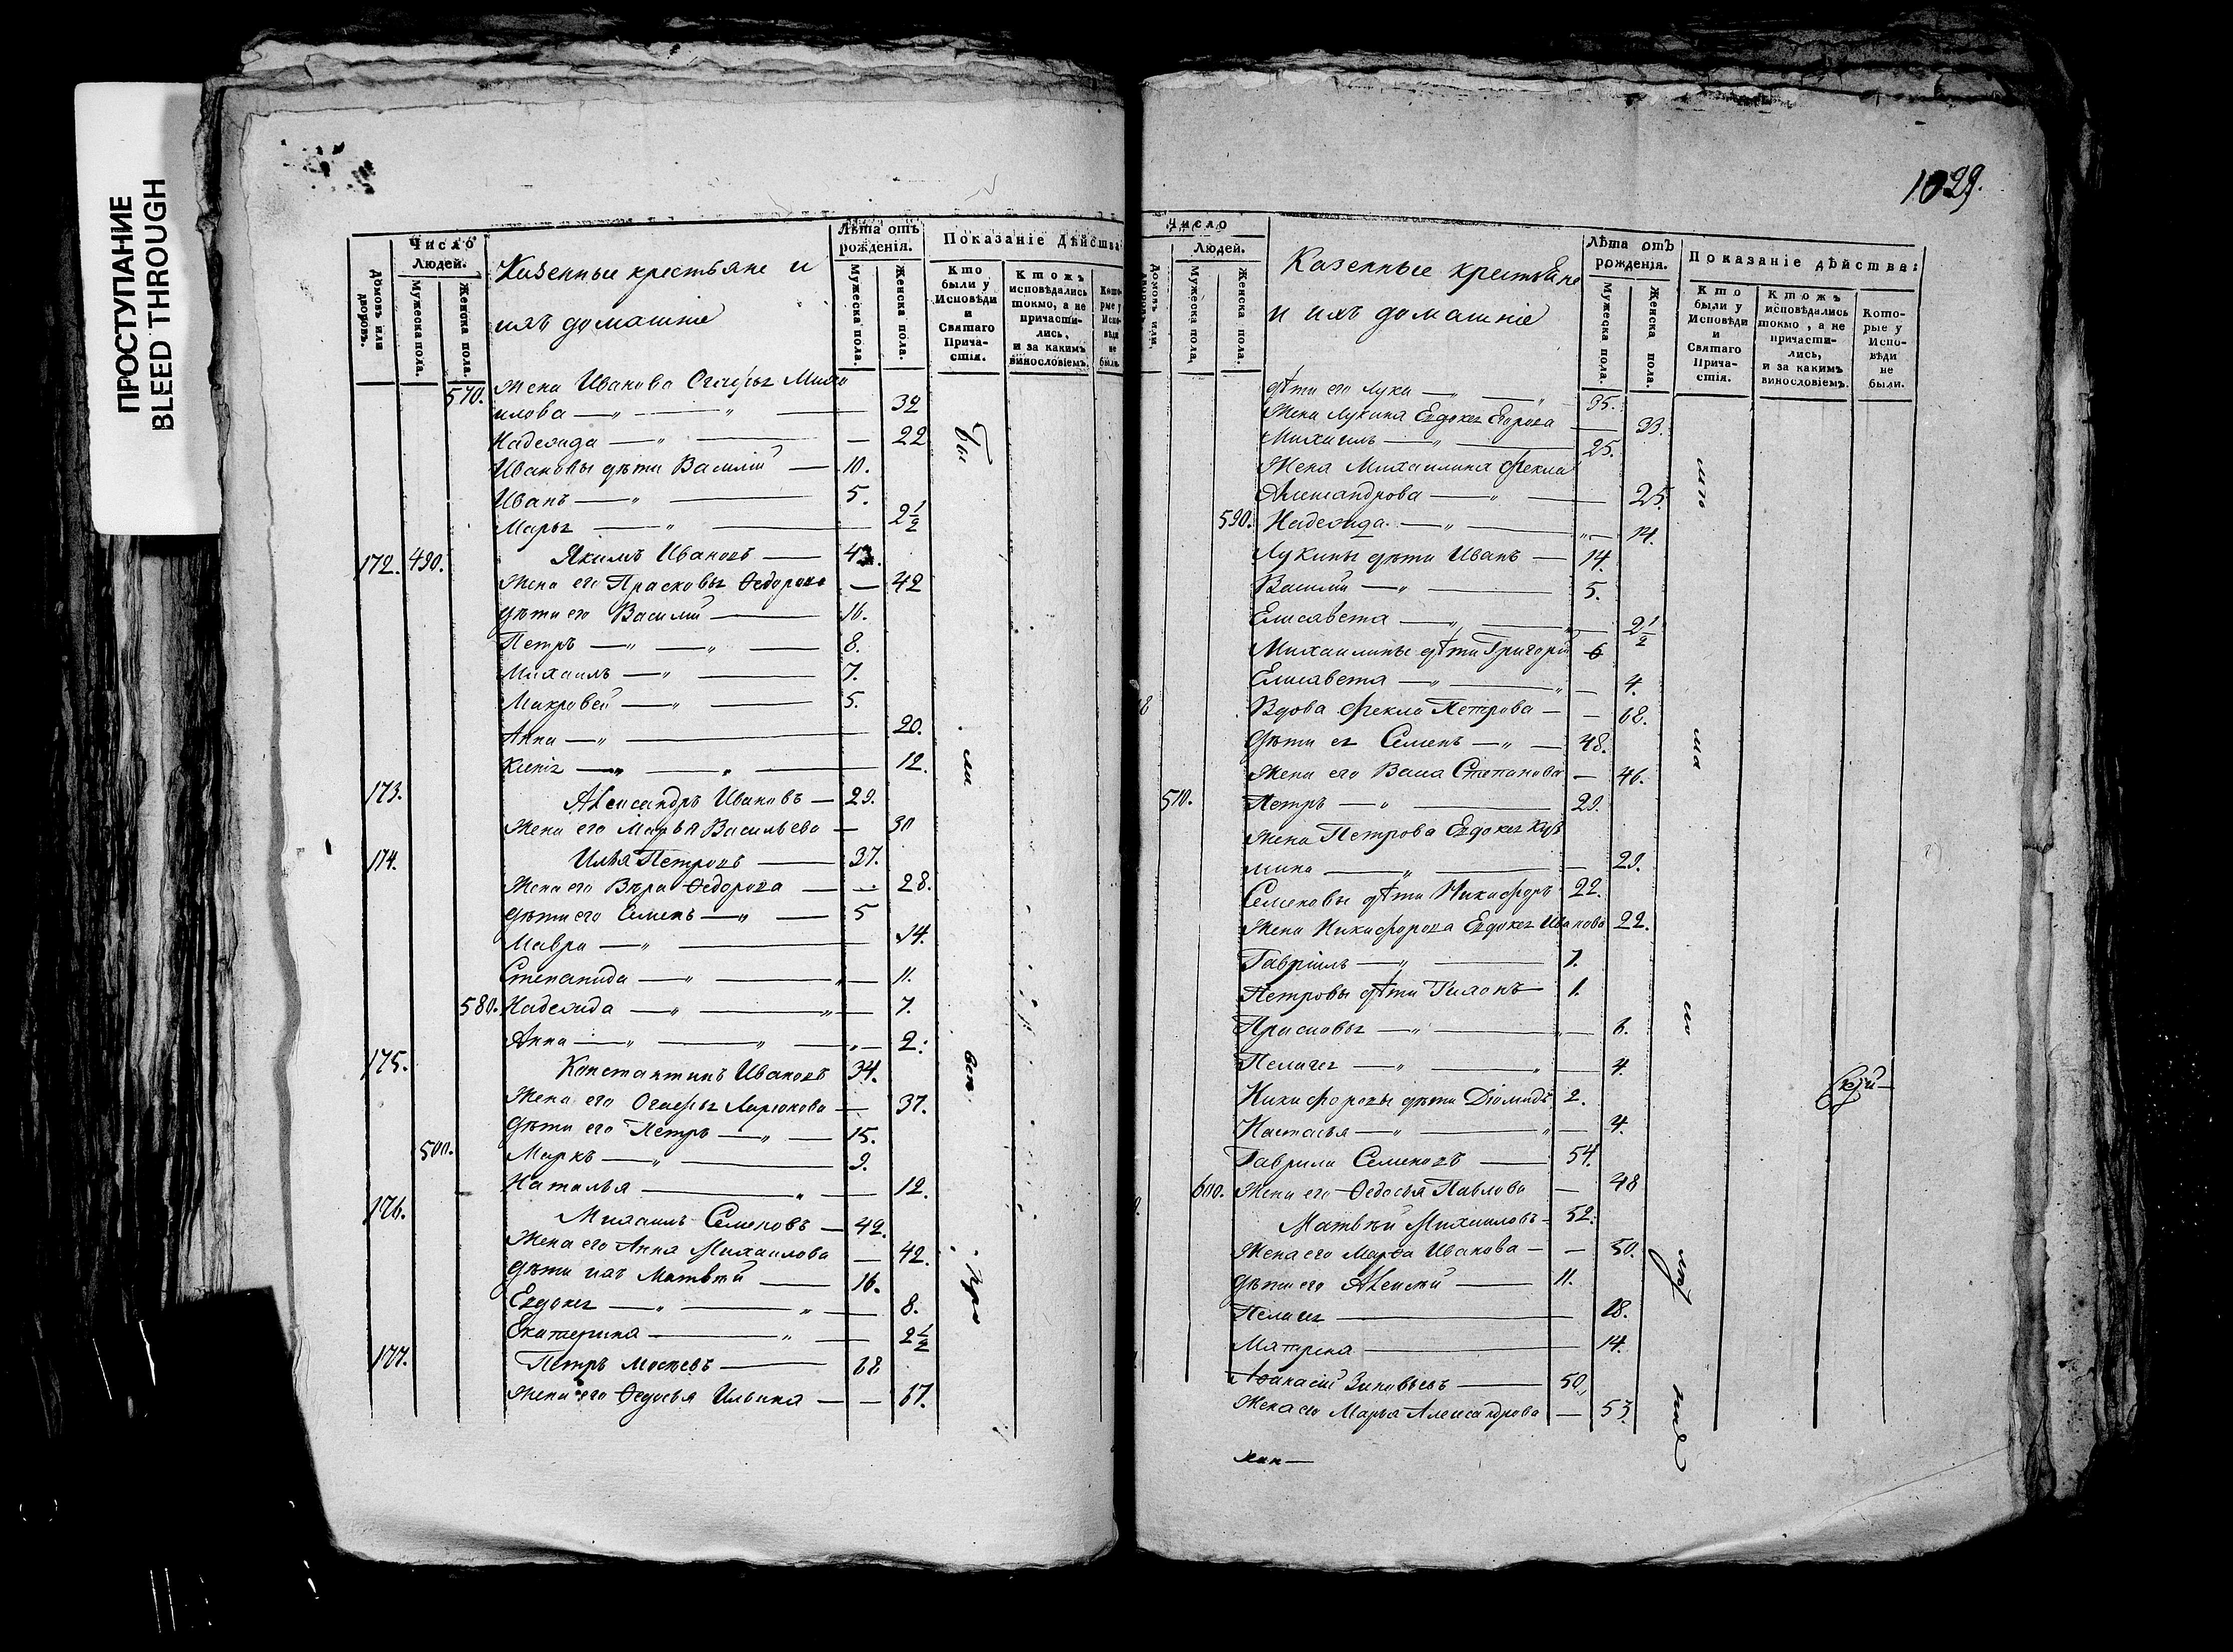 ПРОСТУПАНИЕ
BLEED THROUGH
Домовъ или дворовъ.
Число
Людей.
Мужеска пола.
Женска пола.
Казенные крестьяне и
ихъ домашніе
Лѣта отъ
рожденія.
Мужеска пола.
Женска пола.
Показаніе Дѣйства
Кто были у Исповѣди и Святаго Причастія.
Ктожъ исповѣдались токмо, а не причастились, и за какимъ винословіемъ.
Кото-
рые у
Испо-
вѣди
не
были.
570. Жена Иванова Михаи
илова — 32
Надежда — 22
Ивановы дѣти Василій — 10.
Иванъ — 5.
Марья — 2 1/2
172. 490. Якимъ Ивановъ —
Жена его Прасковья Ѳедорова — 42
дѣти его Василій — 16.
Петръ — 8.
Михаилъ — 7.
5.
Анна — 20.
Ксенія — 12.
173. Александръ Ивановъ — 29.
Жена его Марья Васильева — 30
174. Илья Петровъ — 37.
Жена его Вѣра Ѳедорова — 28.
дѣти его Семенъ — 5
Мавра — 14.
Степанида — 11.
580. Надежда — 7.
Анна — 2.
175. Константинъ Ивановъ 34.
Жена его Ларіонова — 37.
дѣти его Петръ — 15.
500. Маркъ — 9.
Наталья — 12.
176. Михаилъ Семеновъ — 42.
Жена его Анна Михаилова — 42.
дѣти ихъ Матвѣй — 16.
Евдокея — 8.
Екатерина — 2 1/2
177. Петръ — 68
Жена его Ѳедосья Ильина — 67.
Бы
ли
1029.
Число
Людей.
Домовъ или
Мужеска пола.
Женска пола.
Казенные крестьяне
и ихъ домашніе
Лѣта отъ
рожденія.
Мужеска пола.
Женска пола.
Показаніе дѣйства:
Кто были у Исповѣди и Святаго Причастія.
Ктожъ исповѣдались токмо, а не причастились, и за какимъ винословіемъ.
Которые у Исповѣди не были.
дѣти его Лука — 35.
Жена Лукина Евдокея Егорова — 33.
Михаилъ — 25.
Жена Михаилина Фекла
Александрова — 25.
590. Надежда — 14.
Лукины дѣти Иванъ — 14.
Василій — 5.
Елисавета — 2 1/2
Михаилины дѣти Григорій 6
Елисавета — 4.
Вдова Фекла Петрова — 68.
Дѣти ея Семенъ — 48.
Жена его Васа Степанова — 46.
510. Петръ — 29.
Жена Петрова Евдокея Куз
мина — 29.
Семеновы дѣти Никифоръ 22.
Жена Никифорова Евдокея Иванова 22.
Гавріилъ — 7.
Петровы дѣти 1.
Прасковья — 6.
Пелагея — 4.
Никифоровы дѣти Діомидъ 2.
Настасья — 4.
Гаврила Семеновъ — 54.
600. Жена его Ѳедосья Павлова — 48
Матвѣй Михаиловъ — 52.
Жена его Марѳа Иванова — 50.
дѣти его Алексѣй — 11.
Пелагея — 18.
Матрена — 14.
Аѳанасій Зиновьевъ — 50.
Жена его Марья Александрова — 53.